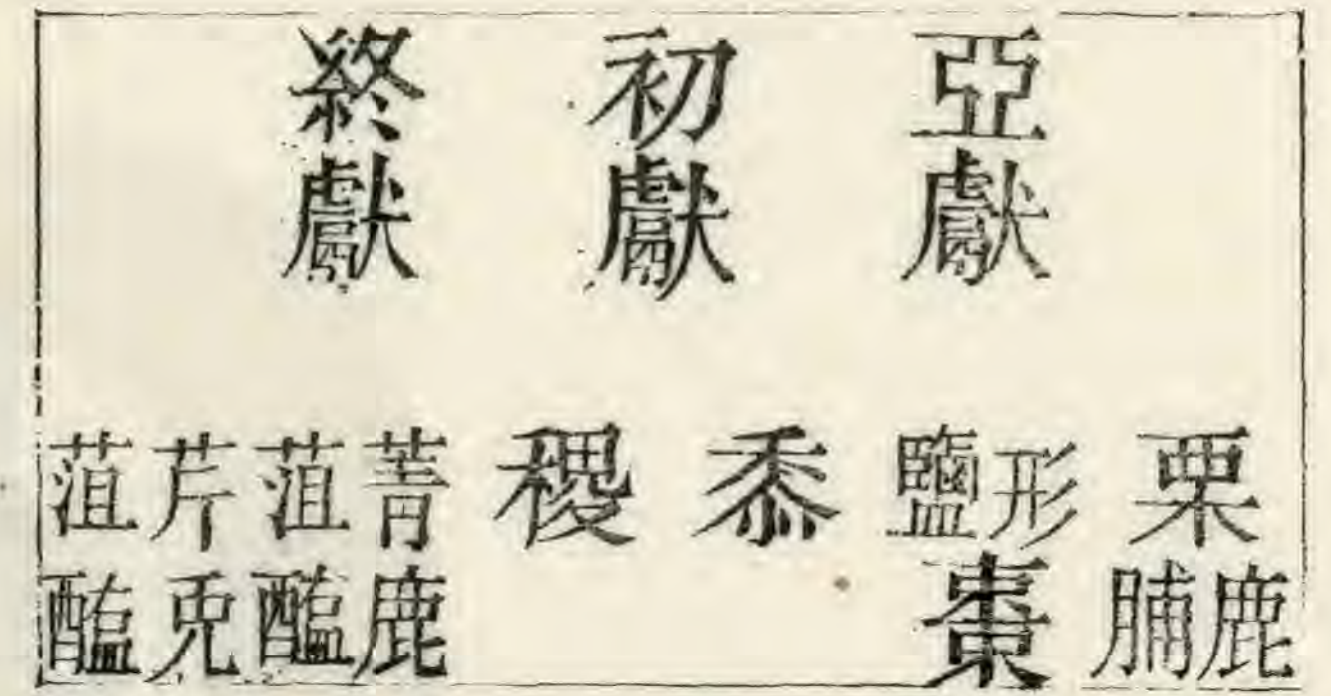 亞獻
初獻
終獻
栗
形鹽
黍
稷
菁菹
芹菹
鹿脯
棗
鹿醢
兎醢